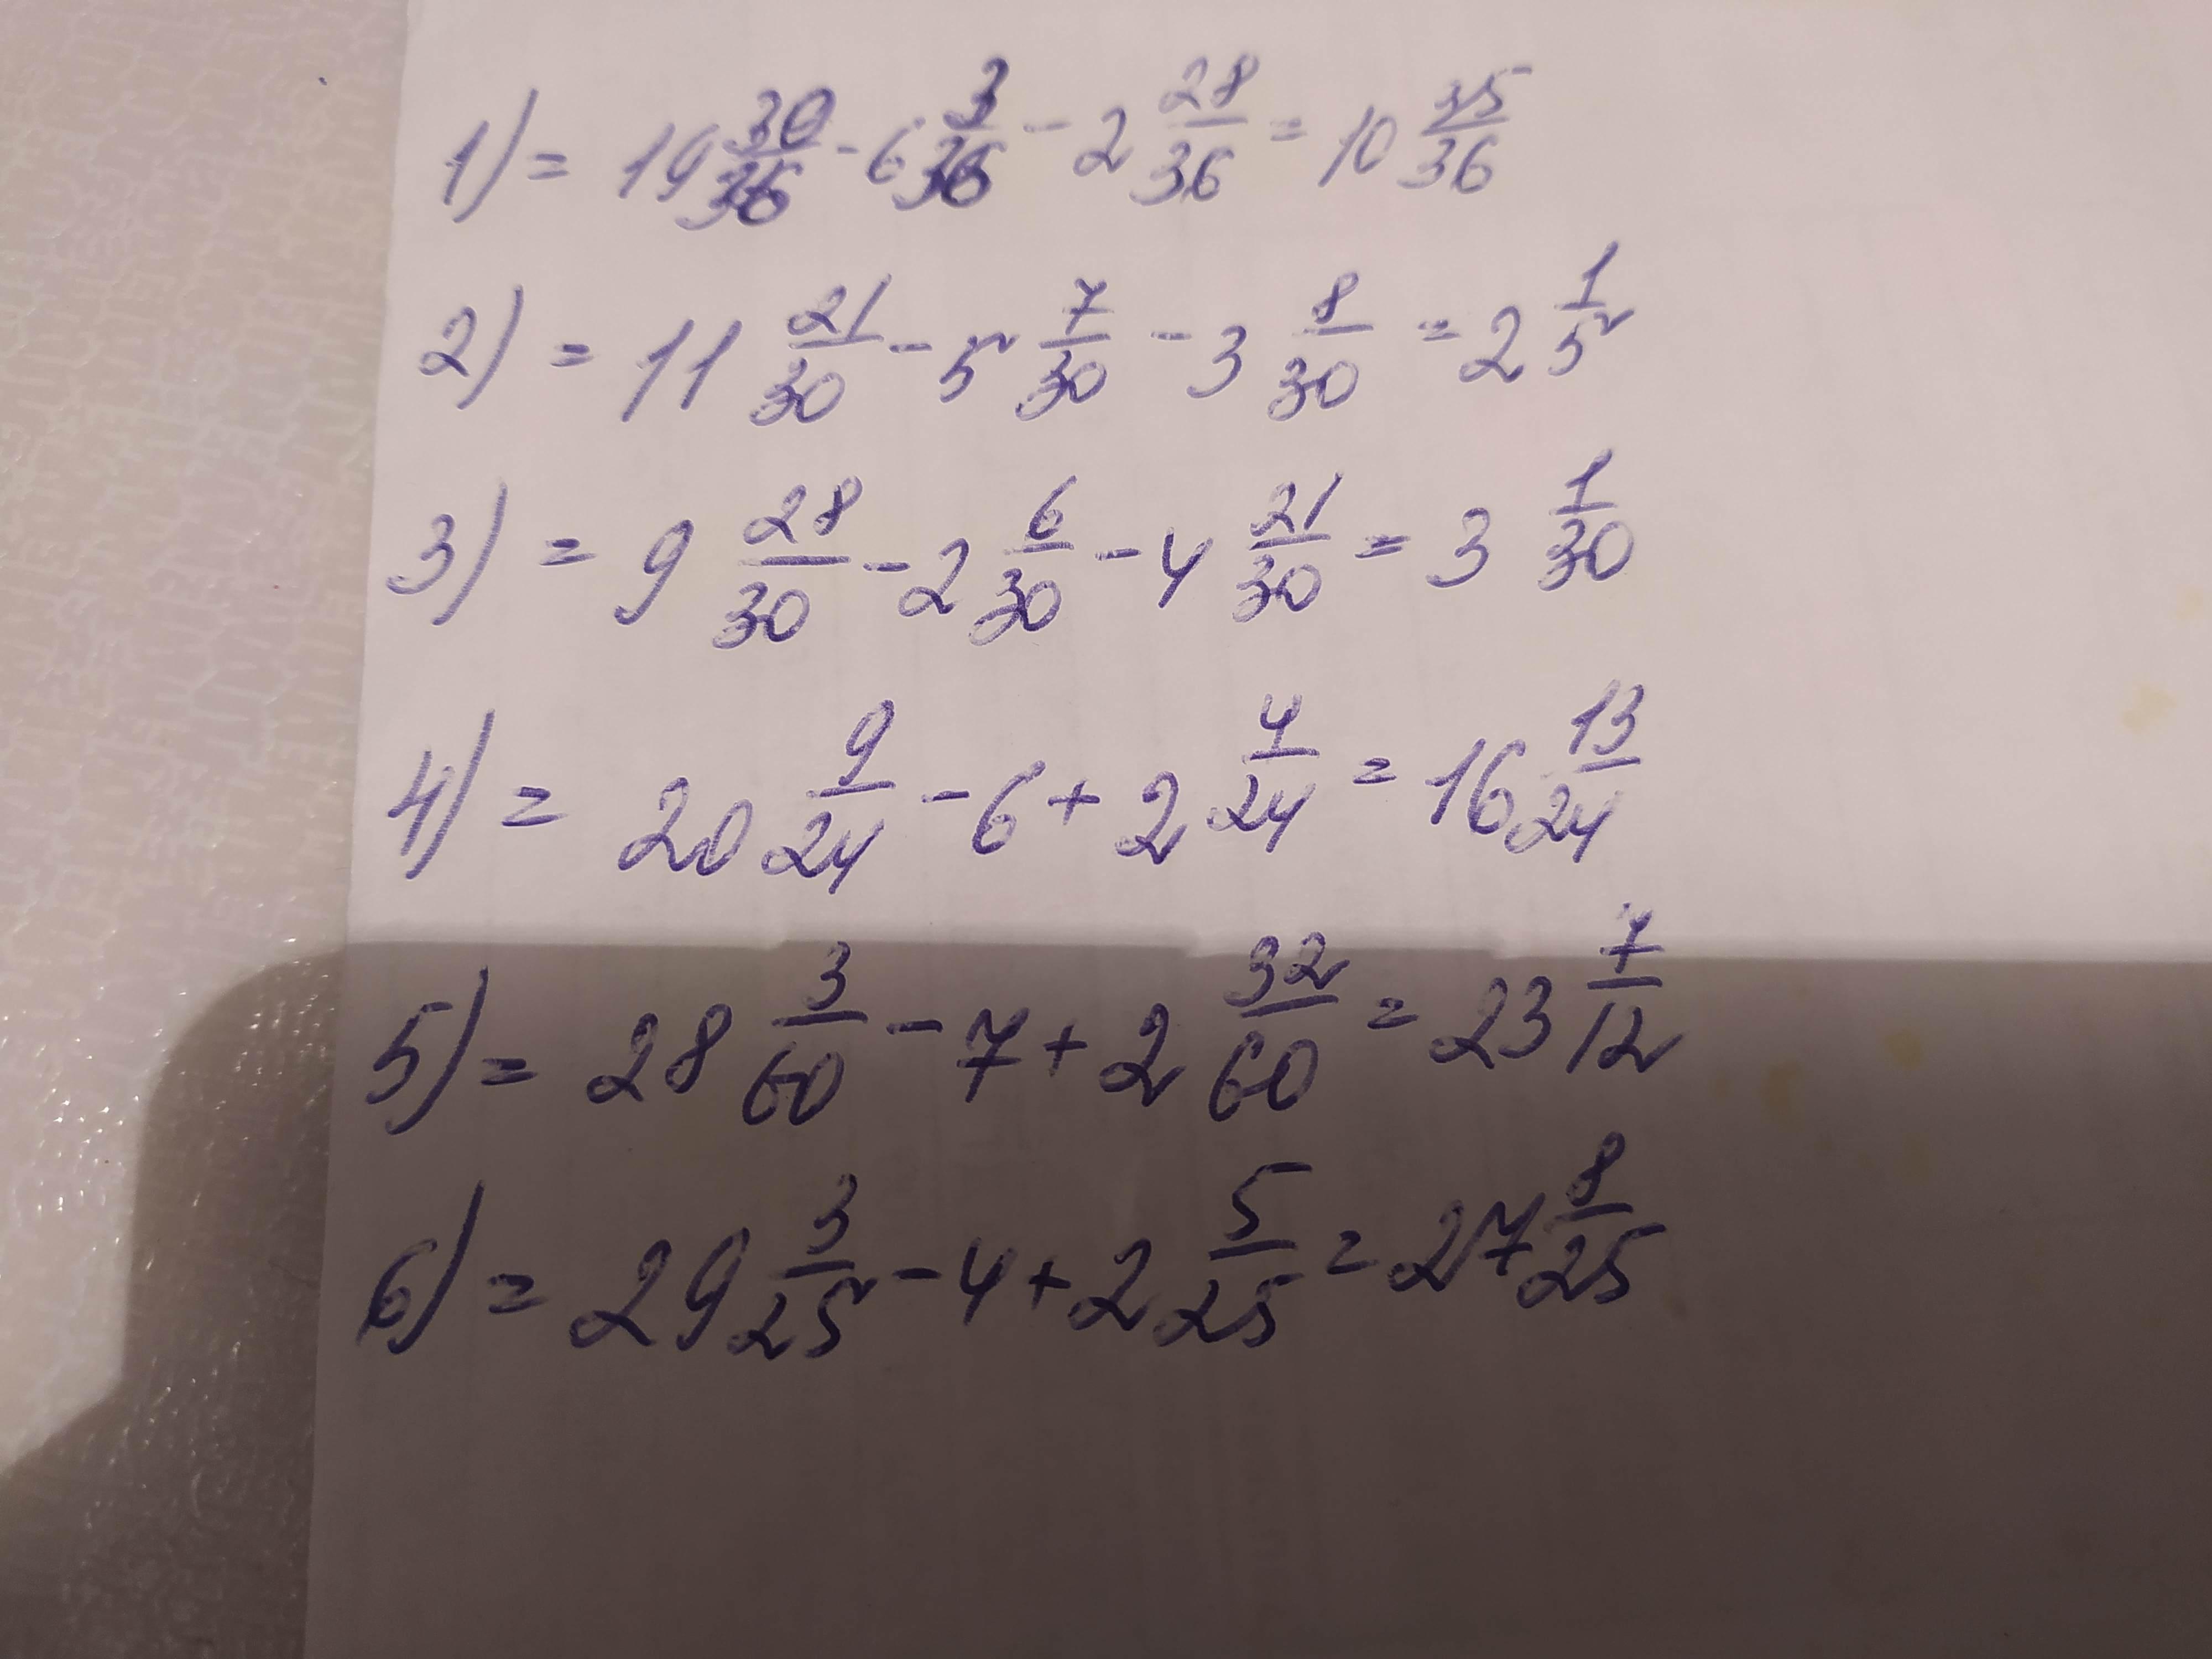 1) = 19 30/36 - 6 3/36 - 2 28/36 = 10 35/36
2) = 11 21/30 - 5 7/30 - 3 8/30 = 2 1/5
3) = 9 28/30 - 2 6/30 - 4 21/30 = 3 1/30
4) = 20 9/24 - 6 + 2 4/24 = 16 13/24
5) = 28 3/60 - 7 + 2 32/60 = 23 7/12
6) = 29 3/25 - 4 + 2 5/25 = 27 8/25